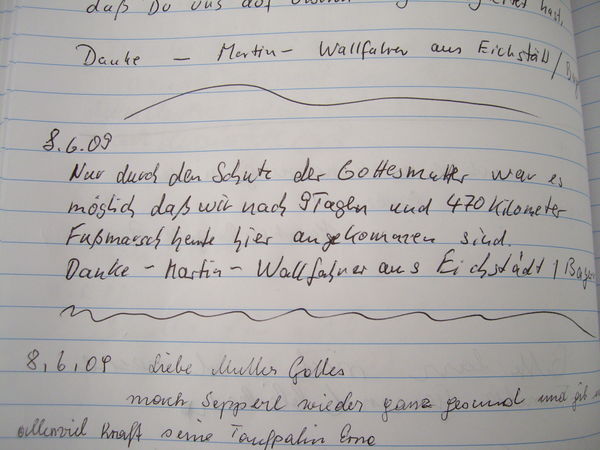 daß Du uns auf hast.
Danke – Martin – Wallfahrer aus Eichstätt / Bay
8.6.09
Nur durch den Schutz der Gottesmutter war es
möglich daß wir nach 9 Tagen und 470 Kilometer
Fußmarsch heute hier angekommen sind.
Danke – Martin – Wallfahrer aus Eichstädt / Bayer
8,6,09 Liebe Mutter Gottes
mach Sepperl wieder ganz gesund und gib
Kraft seine Taufpatin Erna